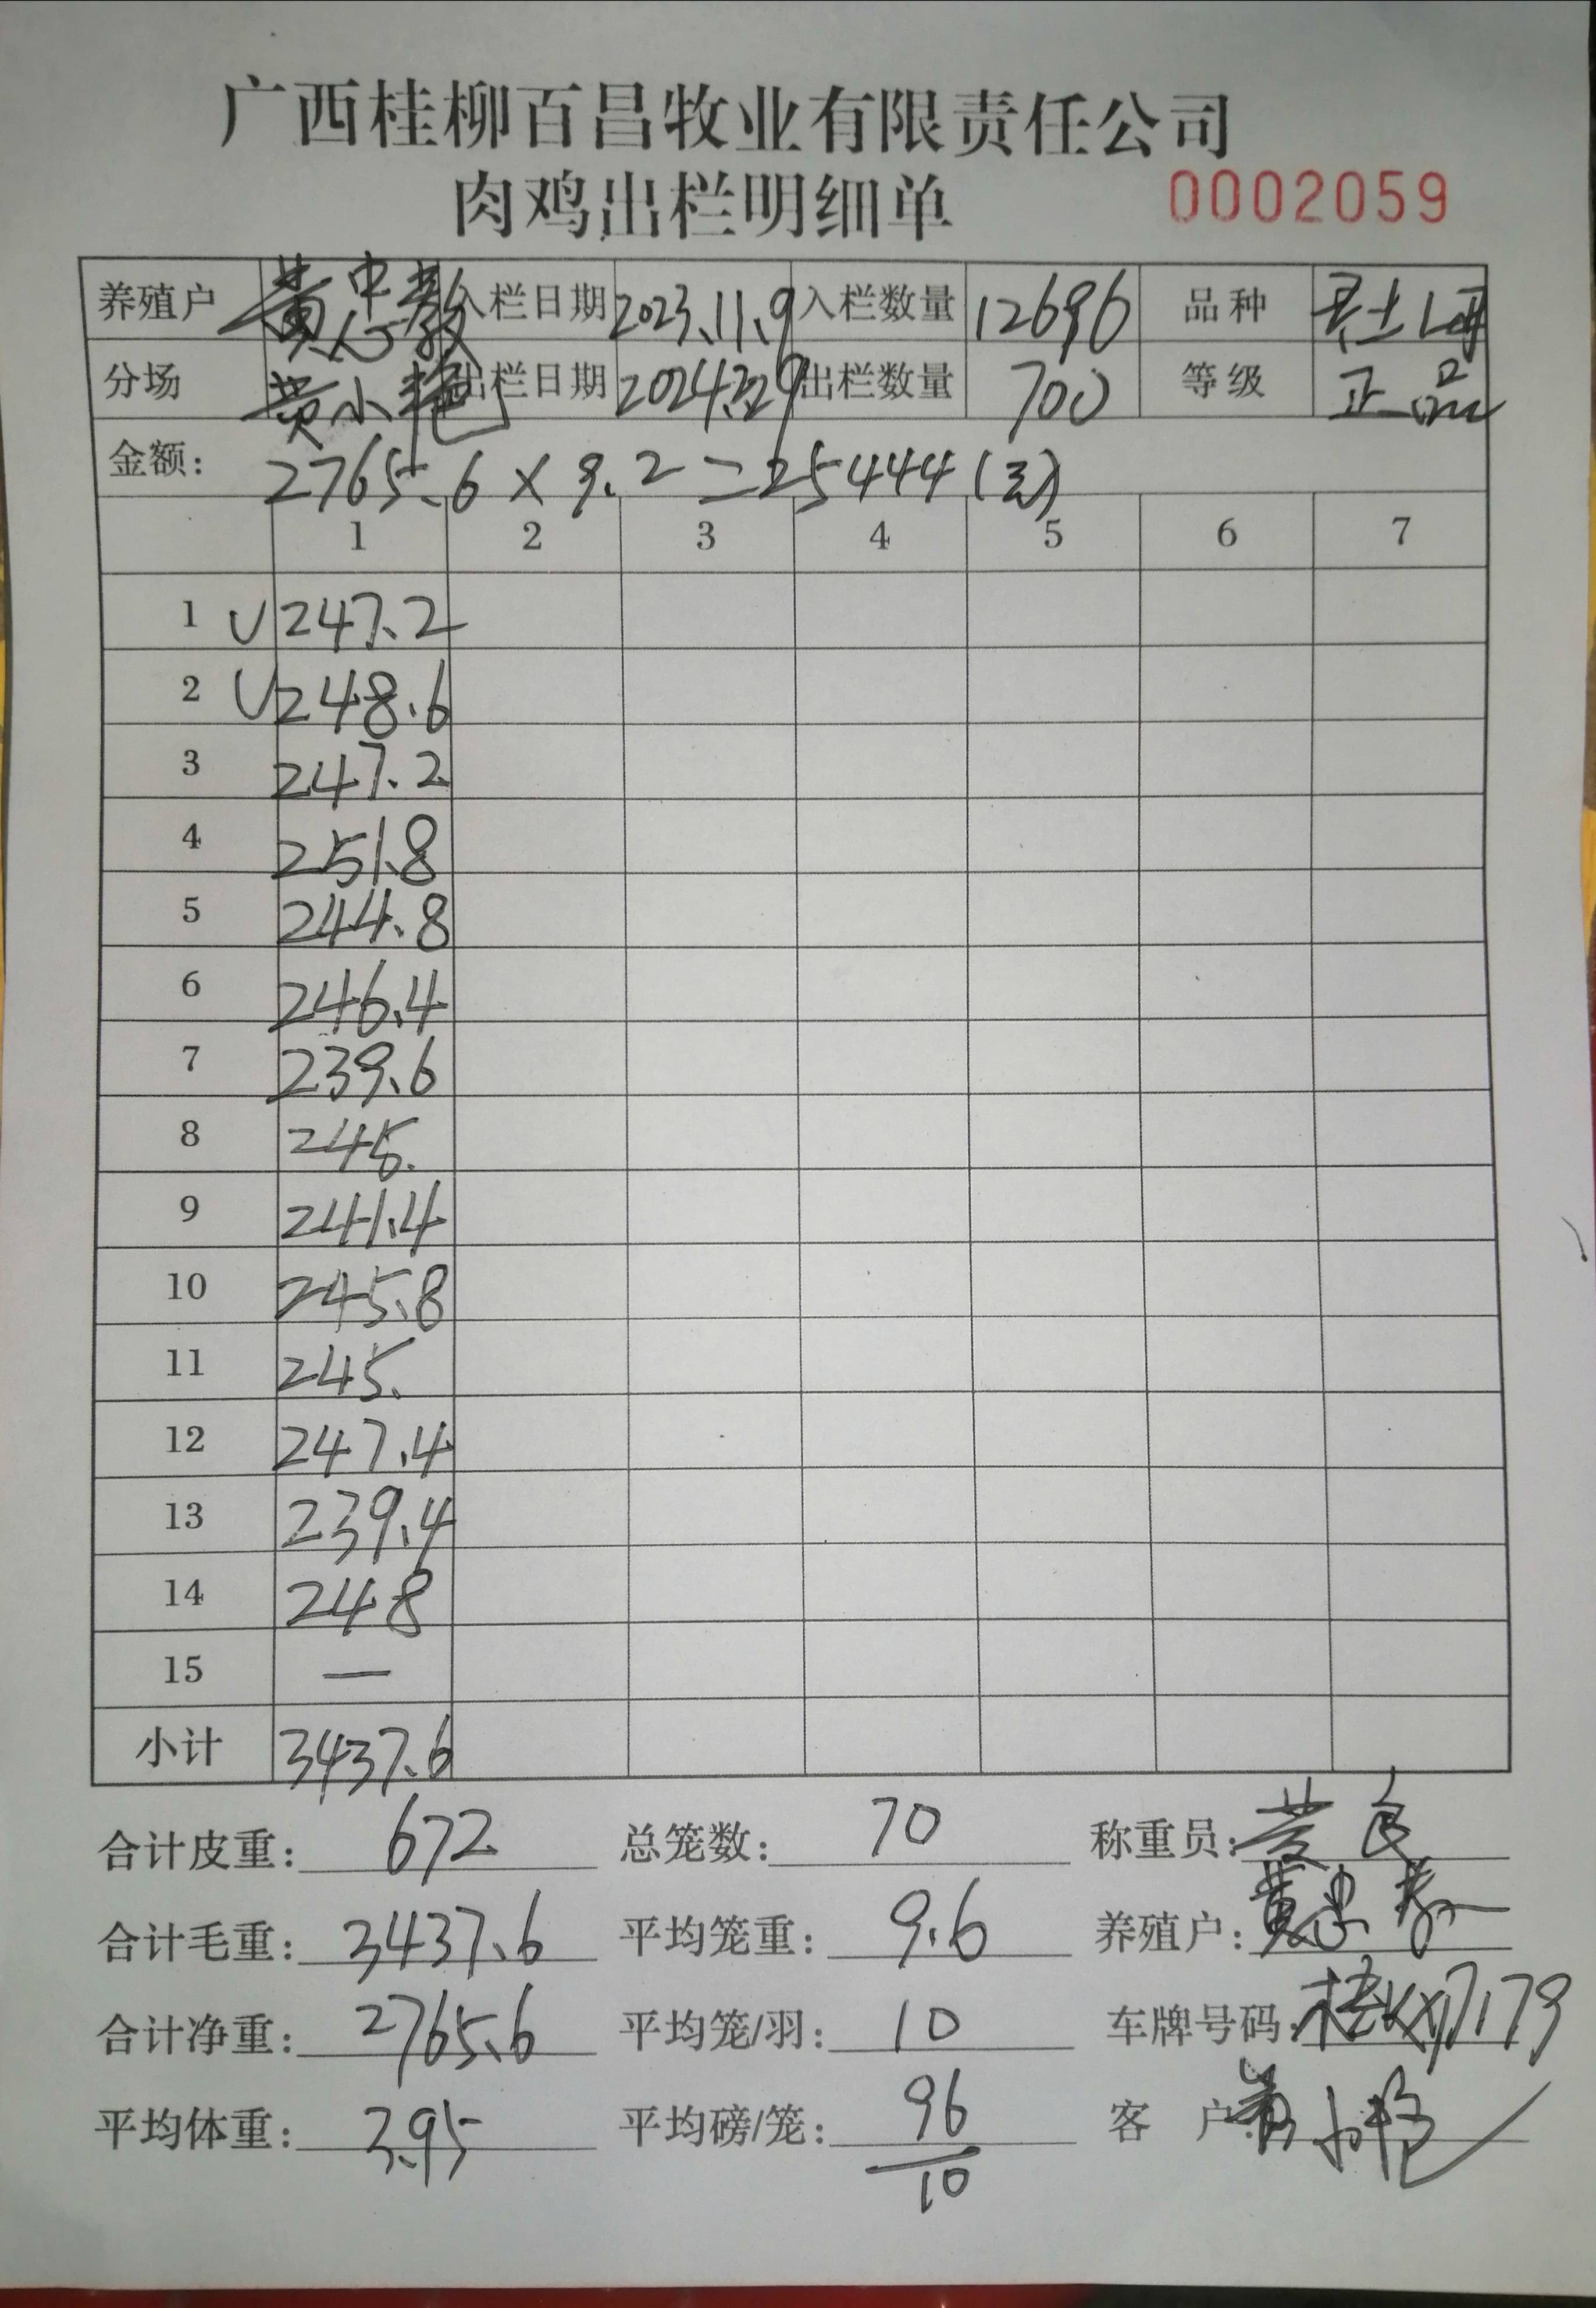 广西桂柳百昌牧业有限责任公司
肉鸡出栏明细单 0002059
养殖户 黄忠教 入栏日期 2023.11.9 入栏数量 12696 品种
分场 黄小艳 出栏日期 2024.2.29 出栏数量 700 等级 正品
金额: 2765.6 × 9.2 = 25444 (元)
1 2 3 4 5 6 7
1 247.2
2 248.6
3 247.2
4 251.8
5 244.8
6 246.4
7 239.6
8 245.
9 241.4
10 245.8
11 245.
12 247.4
13 239.4
14 248
15 —
小计 3437.6
合计皮重: 672 总笼数: 70 称重员:
合计毛重: 3437.6 平均笼重: 9.6 养殖户: 黄忠教
合计净重: 2765.6 平均笼/羽: 10 车牌号码:
平均体重: 3.95 平均磅/笼: 96/10 客 户: 黄小艳